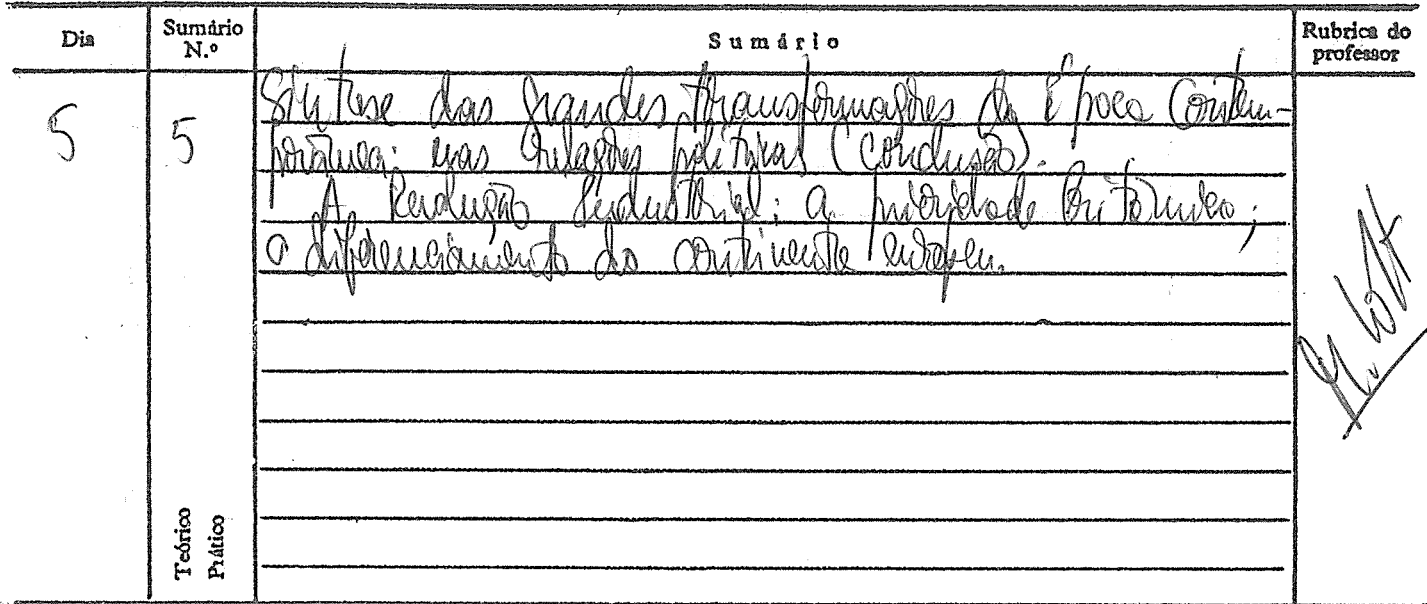 Dia
Sumário N.º
Sumário
Rubrica do professor
5
5
Síntese das grandes transformações da Época Contem-
porânea: nas relações políticas (conclusão).
A Revolução Industrial: a prioridade britânica;
o diferenciamento do continente europeu.
Teórico
Prático